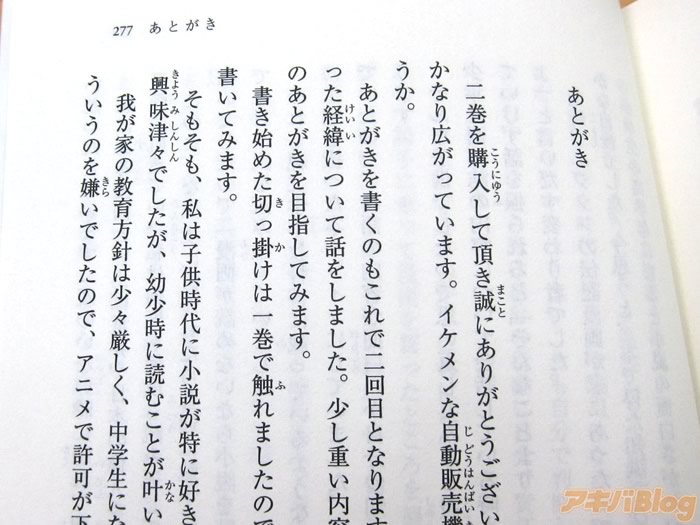 277 あとがき
あとがき
二巻を購入して頂き誠にありがとうござい
かなり広がっています。イケメンな自動販売機
うか。
あとがきを書くのもこれで二回目となります
った経緯について話をしました。少し重い内容
のあとがきを目指してみます。
書き始めた切っ掛けは一巻で触れましたので
書いてみます。
そもそも、私は子供時代に小説が特に好き
興味津々でしたが、幼少時に読むことが叶い
我が家の教育方針は少々厳しく、中学生にな
ういうのを嫌いでしたので、アニメで許可が下
アキバBlog